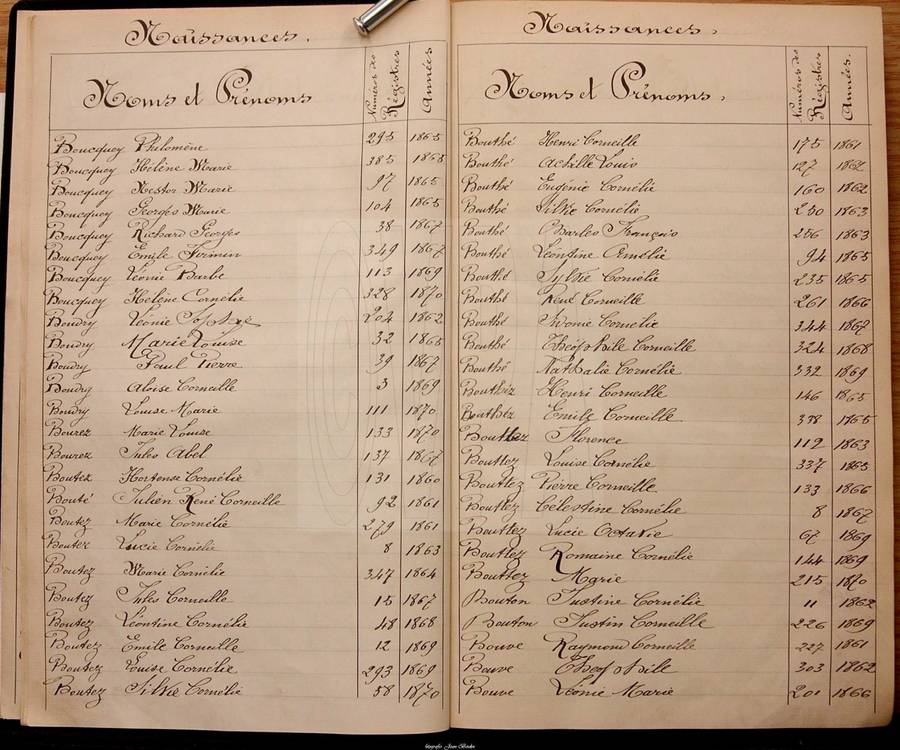 Naissances.
Noms et Prénoms
Numéros des Régistres
Années
Boucquey Philomène 295 1865
Boucquey Hélène Marie 385 1865
Boucquey Nestor Marie 97 1865
Boucquey Georges Marie 104 1865
Boucquey Richard Georges 38 1867
Boucquey Emile Firmin 349 1867
Boucquey Léonie Barbe 113 1869
Boucquey Hélène Cornélie 328 1870
Boudry Léonie Sophie 204 1862
Boudry Marie Louise 32 1865
Boudry Paul Pierre 39 1867
Boudry Aloïse Corneille 3 1869
Boudry Louise Marie 111 1870
Bourez Marie Louise 133 1870
Bourez Jules Abel 137 1867
Boutez Hortense Cornélie 131 1860
Bouté Julien René Corneille 92 1861
Boutez Marie Cornélie 279 1861
Boutez Lucie Cornélie 8 1863
Boutez Marie Cornélie 347 1864
Boutez Jules Corneille 15 1867
Boutez Léontine Cornélie 48 1868
Boutez Emile Corneille 12 1869
Boutez Louise Cornélie 293 1869
Boutez Silvie Cornélie 58 1870
Naissances.
Noms et Prénoms.
Numéros des Régistres
Années.
Bouthé Henri Corneille 175 1861
Bouthé Achille Louis 127 1862
Bouthé Eugénie Cornélie 160 1862
Bouthé Silvie Cornélie 250 1863
Bouthé Charles François 256 1863
Bouthé Léontine Cornélie 94 1865
Bouthé Sylvie Cornélie 235 1865
Bouthé René Corneille 261 1866
Bouthé Cornélie 344 1867
Bouthé Théophile Corneille 324 1868
Bouthé Nathalie Cornélie 332 1869
Bouthéz Henri Corneille 146 1865
Bouthéz Emile Corneille 338 1865
Bouttez Florence 112 1863
Bouttez Louise Cornélie 337 1865
Bouttez Pierre Corneille 133 1866
Bouttez Célestine Cornélie 8 1867
Bouttez Lucie Octavie 67 1869
Bouttez Romaine Cornélie 144 1869
Bouttez Marie 215 1870
Bouton Justine Cornélie 11 1862
Bouton Justin Corneille 226 1869
Bouve Raymond Corneille 227 1861
Bouve Théophile 303 1862
Bouve Léonie Marie 201 1866